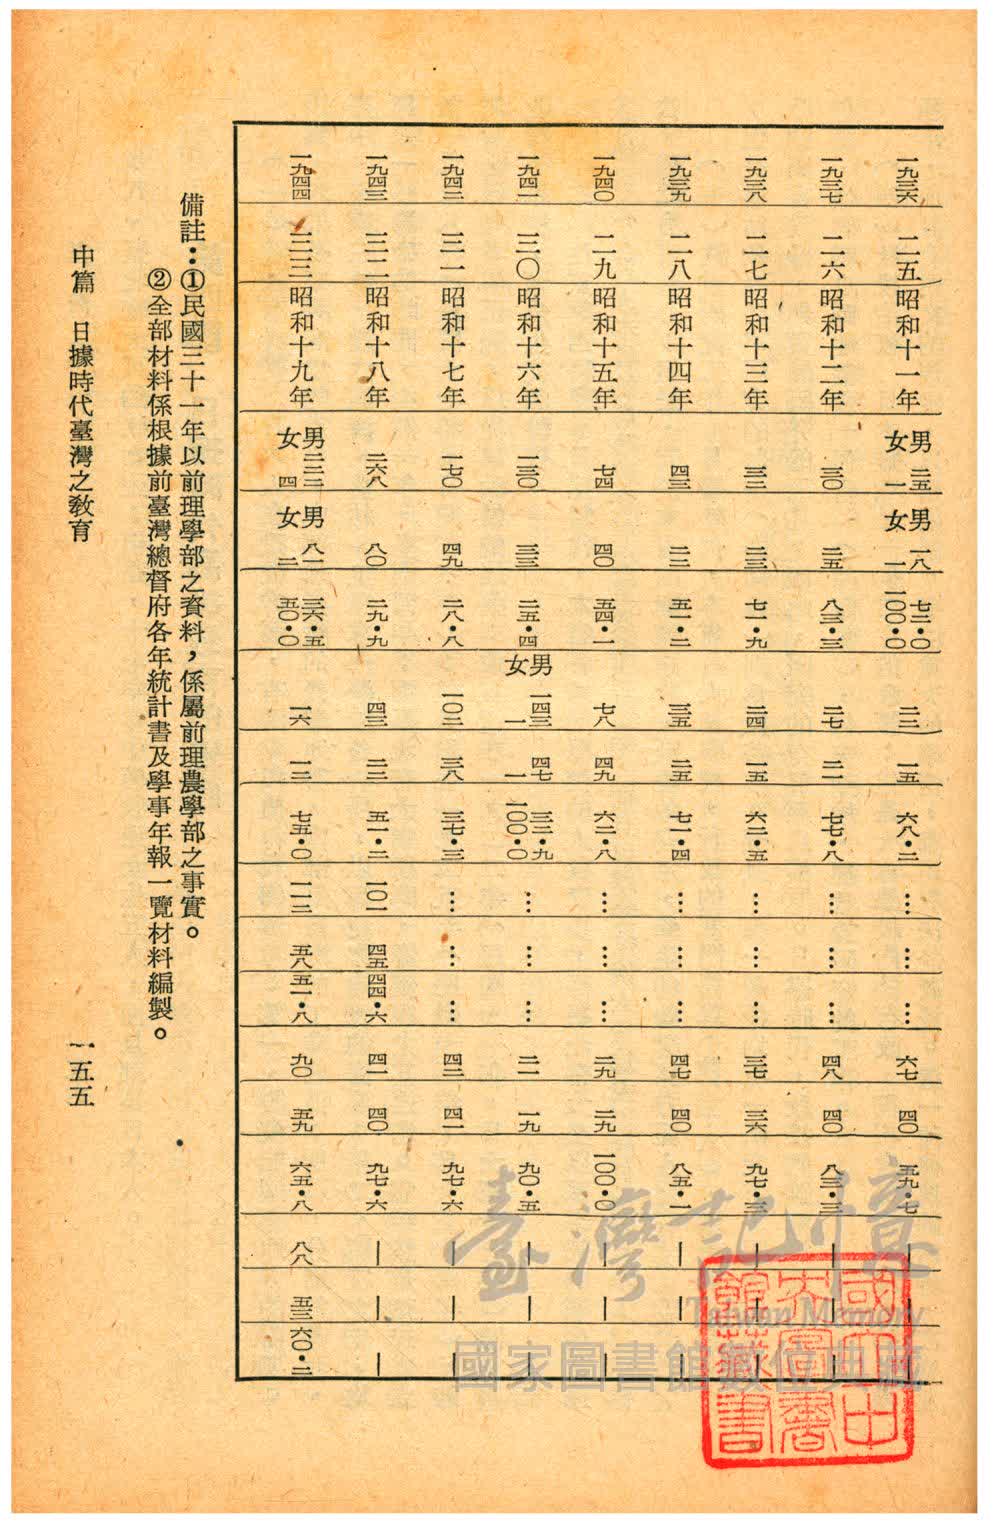 一九三六 二五 昭和十一年 男二五 女一 男一八 女一 七二・〇 一〇〇・〇 二二 一五 六八・二 … … … 六七 四〇 五九・七 — — —
一九三七 二六 昭和十二年 三〇 二五 八三・三 二七 二一 七七・八 … … … 四八 四〇 八三・三 — — —
一九三八 二七 昭和十三年 三二 二三 七一・九 二四 一五 六二・五 … … … 三七 三六 九七・三 — — —
一九三九 二八 昭和十四年 四三 二二 五一・二 三五 二五 七一・四 … … … 四七 四〇 八五・一 — — —
一九四〇 二九 昭和十五年 七四 四〇 五四・一 七八 四九 六二・八 … … … 二九 二九 一〇〇・〇 — — —
一九四一 三〇 昭和十六年 一三〇 三三 二五・四 男一四三 女一 四七 一 三二・九 一〇〇・〇 … … … 二一 一九 九〇・五 — — —
一九四二 三一 昭和十七年 一七〇 四九 二八・八 一〇二 三八 三七・三 … … … 四二 四一 九七・六 — — —
一九四三 三二 昭和十八年 二六八 八〇 二九・九 四三 二二 五一・二 一〇一 四五 四四・六 四一 四〇 九七・六 — — —
一九四四 三三 昭和十九年 男二二二 女四 男八一 女二 三六・五 五〇・〇 一六 一二 七五・〇 一一二 五八 五一・八 九〇 五九 六五・八 八八 五三 六〇・二
備註：①民國三十一年以前理學部之資料，係屬前理農學部之事實。
②全部材料係根據前臺灣總督府各年統計書及學事年報一覽材料編製。
中篇 日據時代臺灣之教育
一五五
臺灣記憶
Taiwan Memory
國家圖書館數位典藏
國立中央圖書館藏書